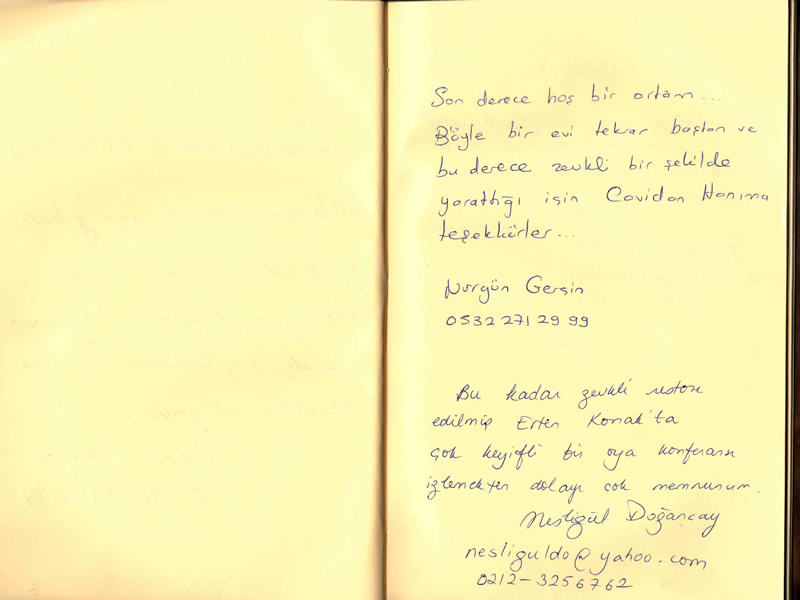 Son derece hoş bir ortam...
Böyle bir evi tekrar baştan ve
bu derece zevkli bir şekilde
yarattığı için Cavidan Hanıma
teşekkürler...
Nurgün Gerşin
0532 271 29 99
Bu kadar zevkli restore
edilmiş Erten Konak'ta
çok keyifli bir oya konferansı
izlemekten dolayı çok memnunum.
Nesligül Doğançay
nesliguldo@yahoo.com
0212-3256762